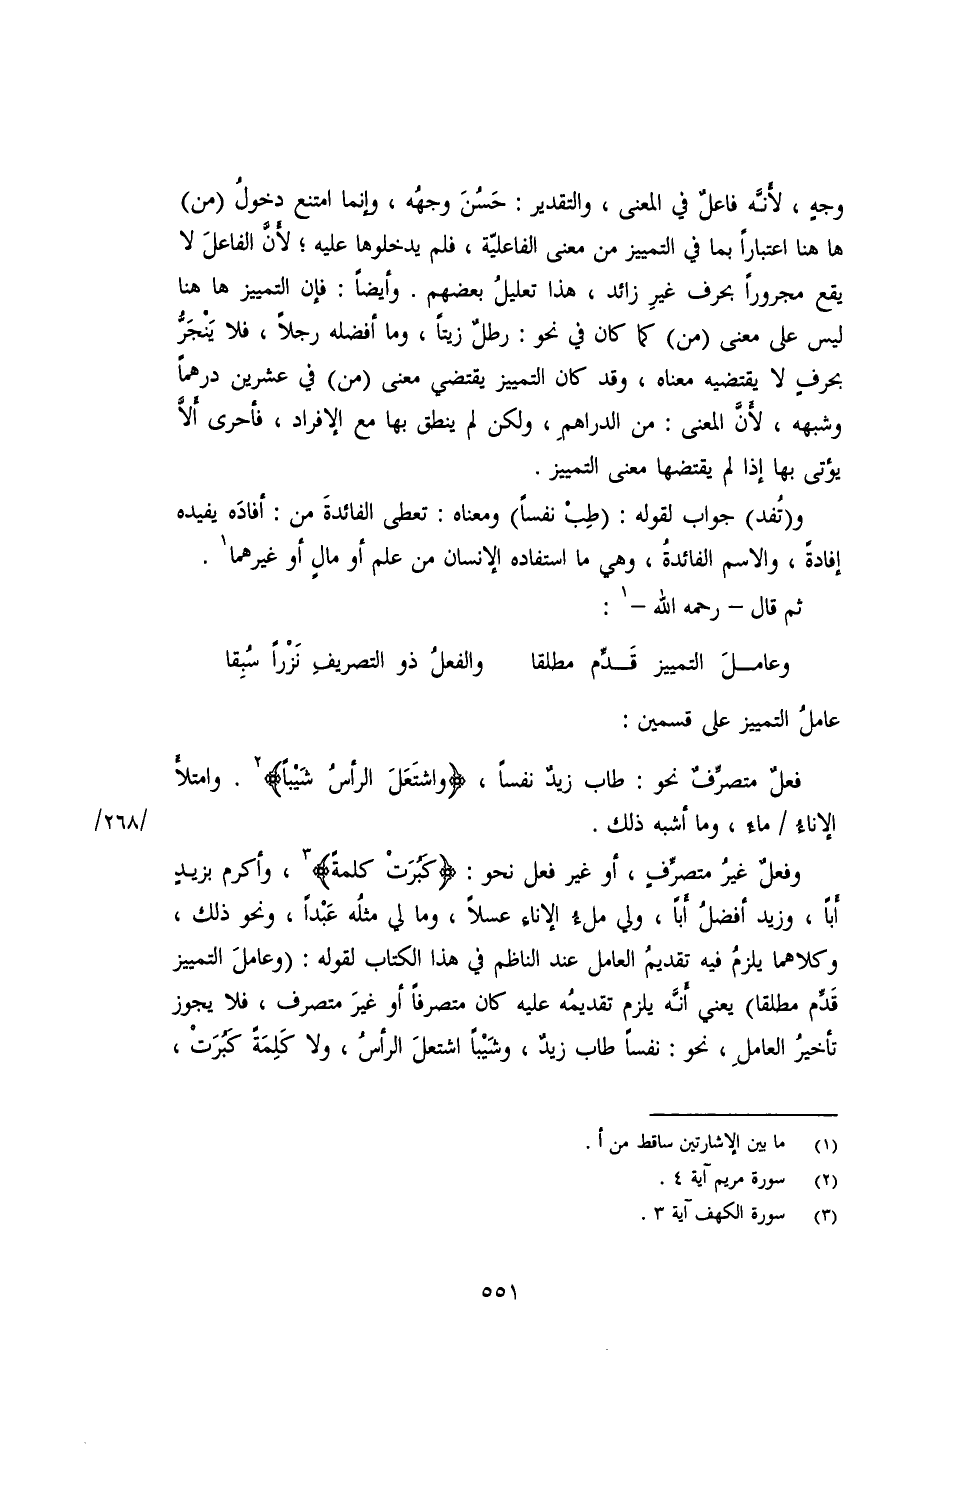 وجهٍ ، لأَنَّه فاعلٌ في المعنى ، والتقدير : حَسُنَ وجهُه ، وإنما امتنع دخولُ (من)
ها هنا اعتباراً بما في التمييز من معنى الفاعليّة ، فلم يدخلوها عليه ؛ لأَنَّ الفاعلَ لا
يقع مجروراً بحرف غيرِ زائد ، هذا تعليلُ بعضهم . وأيضاً : فإن التمييز ها هنا
ليس على معنى (من) كما كان في نحو : رطلٌ زيتاً ، وما أفضله رجلاً ، فلا يَنْجَرُّ
بحرفٍ لا يقتضيه معناه ، وقد كان التمييز يقتضي معنى (من) في عشرين درهماً
وشبهه ، لأَنَّ المعنى : من الدراهمِ ، ولكن لم ينطق بها مع الإفراد ، فأحرى أَلاَّ
يؤتى بها إذا لم يقتضها معنى التمييز .
و(تُفد) جواب لقوله : (طِبْ نفساً) ومعناه : تعطى الفائدةَ من : أفادَه يفيده
إفادةً ، والاسم الفائدةُ ، وهي ما استفاده الإنسان من علم أو مالٍ أو غيرهما١ .
ثم قال – رحمه الله –١ :
وعامـــلَ التمييز قَـــدِّم مطلقا والفعلُ ذو التصريفِ نَزْراً سُبِقا
عاملُ التمييز على قسمين :
فعلٌ متصرِّفٌ نحو : طاب زيدٌ نفساً ، ﴿واشتَعَلَ الرأسُ شَيْباً﴾٢ . وامتلأَ
الإناءُ / ماء ، وما أشبه ذلك . /٢٦٨/
وفعلٌ غيرُ متصرِّفٍ ، أو غير فعل نحو : ﴿كَبُرَتْ كلمةً﴾٣ ، وأكرم بزيـدٍ
أَباً ، وزيد أفضلُ أَباً ، ولي ملءُ الإناءِ عسلاً ، وما لي مثلُه عَبْداً ، ونحو ذلك ،
وكلاهما يلزمُ فيه تقديمُ العامل عند الناظم في هذا الكتاب لقوله : (وعاملَ التمييز
قَدِّم مطلقا) يعني أَنَّه يلزم تقديمُه عليه كان متصرفاً أو غيرَ متصرف ، فلا يجوز
تأخيرُ العاملِ ، نحو : نفساً طاب زيدٌ ، وشَيْباً اشتعلَ الرأسُ ، ولا كَلِمَةً كَبُرَتْ ،
(١) ما بين الإشارتين ساقط من أ .
(٢) سورة مريم آية ٤ .
(٣) سورة الكهف آية ٣ .
٥٥١